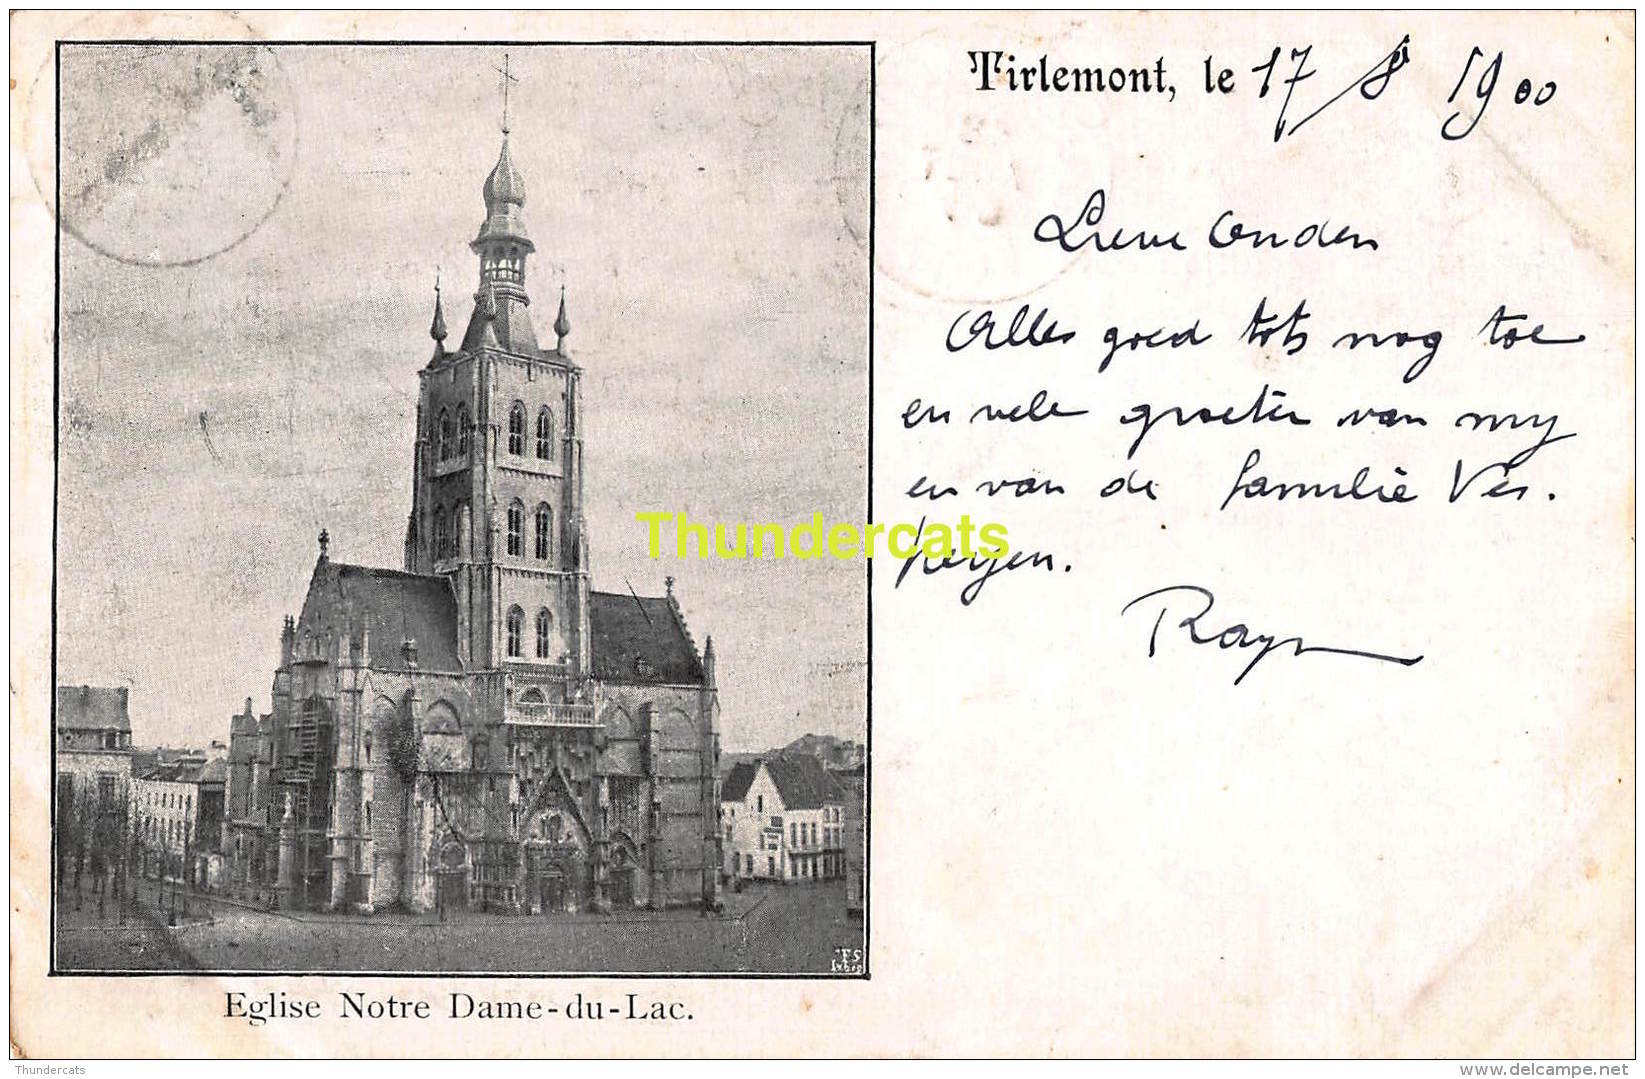 Tirlemont, le 17/8 1900
Lieve Ouders
Alles goed tots nog toe
en vele groeten van my
en van de familie Ver.
heyen.
Raym
Thundercats
Eglise Notre Dame-du-Lac.
Thundercats
delcampe.net